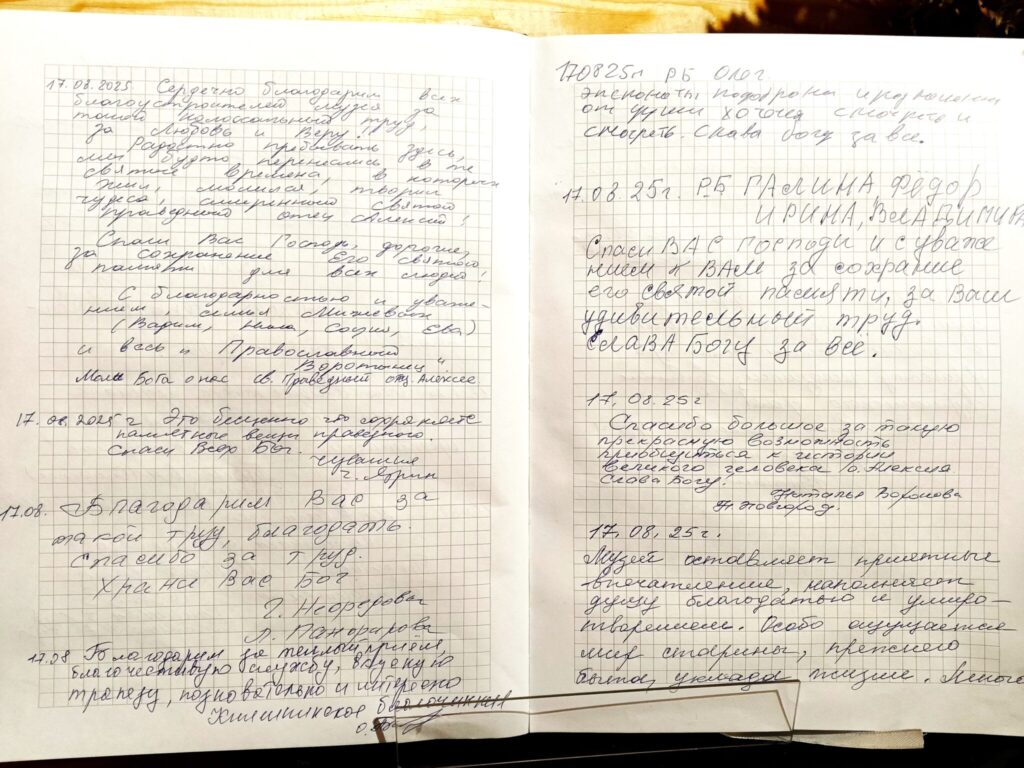 17.08.2025 Сердечно благодарим всех
благоустроителей музея за
такой колоссальный труд,
за Любовь и Веру!
Радостно пребывать здесь,
мы будто перенеслись в те
святые времена, в которых
жил, молился, творил
чудеса, смиренный святой
праведный отец Алексий!
Спаси Вас Господь, дорогие,
за сохранение Его святой
памяти для всех людей!
С благодарностью и уваже-
нием, семья
(Вадим, Нина, София, Ева)
и весь "Православный
Воротынец".
Моли Бога о нас св. Праведный отц Алексее
17.08.2025 г Это бесценно что сохраняете
памятные вещи праведного.
Спаси Всех Бог.
Чувашия
г. Ядрин
17.08. Благодарим Вас за
такой труд, благодать.
Спасибо за труд.
Храни Вас Бог
Г.
Л.
17.08 Благодарим за теплый приём,
благочестивую службу, вкусную
трапезу, позновательно и интересно
благочиние
170825г РБ Олег.
экспонаты подобраны
от души хочется смотреть и
смотреть. Слава богу за все.
17.08.25г. РБ ГАЛИНА, ФЁДОР
ИРИНА, ВЛАДИМИР
Спаси ВАС Господи и с уваже
нием к ВАМ за сохрание
его святой памяти, за Ваш
удивительный труд.
СЛАВА Богу за все.
17.08.25г
Спасибо большое за такую
прекрасную возможность
приобщиться к истории
великого человека /о. Алексея
Слава Богу!
Наталья Воронова
Н. Новгород.
17.08.25г.
Музей оставляет приятные
впечатление, наполняет
душу благодатью и умиро-
творением. Особо ощущается
мир старины, прежнего
быта, уклада жизни. Много